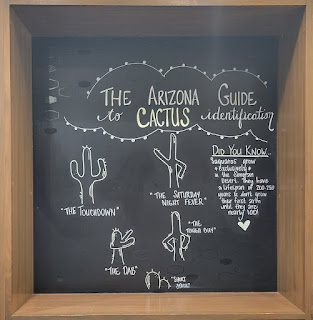 THE ARIZONA GUIDE
to CACTUS identification
"THE TOUCHDOWN"
"THE SATURDAY
NIGHT FEVER"
"THE DAB"
"THE
TOUGH GUY"
DID YOU KNOW...
Saguaros grow
exclusively
in the Sonoran
Desert. They have
a lifespan of 200-250
years & don't grow
their first arm
until they are
nearly 100!